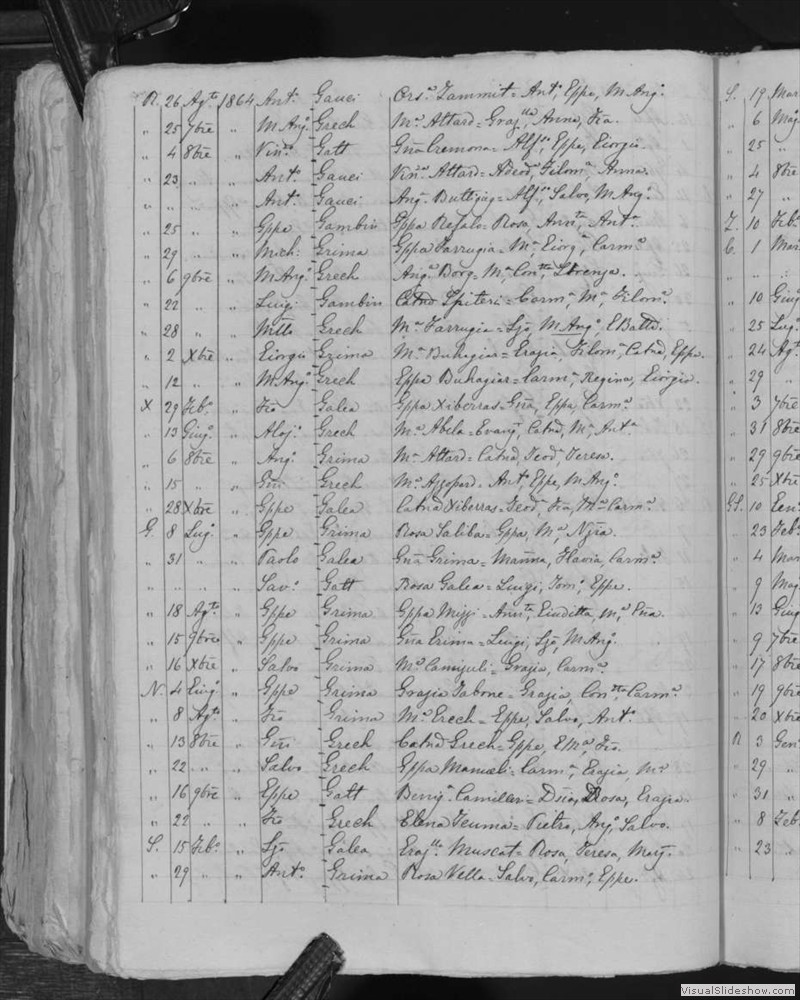 R. 26 Agto 1864 Anto. Gauci Orsa. Zammit = Anta, Eppa, M Anga.
„ 25 7bre „ M Anga. Grech Ma. Attard = Grajlla, Anna, Fca.
„ 4 8bre „ Vinzo. Gatt Gna Cremona = Alfsa, Eppe, Eiorgia.
„ 23 „ „ Anto. Gauci Vinza. Attard = Adeod, Filoma. Anna.
„ „ „ „ Anto. Gauci Anga. Buttigig = Alfsa, Salvo, M Anga.
„ 25 „ „ Gppe Gambin Gppa Refalo = Rosa, Annta, Anta.
„ 29 „ „ Mich. Grima Gppa Farrugia = Ma Eiorga, Carma.
„ 6 9bre „ M Anga. Grech Anga. Borg = Ma, Conta, Lorenza.
„ 22 „ „ Luigi Gambin Catna Spiteri = Carma, Ma, Filoma.
„ 28 „ „ Grech Ma. Farrugia = Lzo, M Anga, EBatta.
„ 2 Xbre „ Eiorgio Grima Ma. Buhagiar = Erazia, Filoma, Catna, Eppa.
„ 12 „ „ M Anga. Grech Eppa Buhagiar = Carma, Regina, Eiorgio.
X 29 Feb. „ Fco Galea Gppa Xiberras = Gna, Eppa, Carma.
„ 13 Giug. „ Aloj. Grech Ma. Abela = Evang, Catna, Ma. Anta.
„ 6 8bre „ Ango. Grima Ma. Attard = Catna, Teod, Teresa.
„ 15 „ „ Gio Grech Ma. Azzopard = Anta, Eppa, M Anga.
„ 28 Xbre „ Gppe Galea Catna Xiberras = Teod, Fca, Ma Carma.
G. 8 Lug. „ Gppe Grima Rosa Saliba = Gppa, Ma,
„ 31 „ „ Paolo Galea Gna Grima = Marina, Flavia, Carma.
„ „ „ Sav. Gatt Rosa Galea = Luigi, Tom, Eppe.
„ 18 Agto „ Gppe Grima Gppa Mizzi = Annta, Eiuditta, Ma, Ena.
„ 15 9bre „ Gppe Grima Gna Erima = Luigi, Lzo, M Anga.
„ 16 Xbre „ Salvo Grima Ma. = Grazia, Carma.
N. 4 Eiug. „ Gppe Grima Grazia Tabone = Grazia, Conta Carma.
„ 8 Agto „ Fco Grima Ma. Erech = Eppa, Salvo, Anto.
„ 13 8bre „ Gio Grech Catna Grech = Gppe, EMa, Fco.
„ 22 „ „ Salvo Grech Eppa Manueli = Carma, Erazia, Ma
„ 16 9bre „ Eppe Gatt Benig. Camilleri = Rosa, Erazia.
„ 22 „ „ Fco Grech Elena Teuma = Pietro, Anga, Salvo.
S. 15 Feb. „ Lzo Galea Erajlla. Muscat = Rosa, Teresa, Marj.
„ 29 „ „ Anto. Grima Rosa Vella = Salvo, Carma, Eppe.
S. 19 Mar
„ 6 Mag
„ 25 „
„ 4 8bre
„ 27 „
Z. 10 Feb.
C. 1 Mar
„ „ „
„ 10 Giug
„ 25 Lug.
„ 24 Agto
„ 29 „
„ 3 7bre
„ 31 8bre
„ 29 9bre
„ 25 Xbre
GS. 10 Een.
„ 23 Feb.
„ 4 Mar
„ 9 Mag
„ 13 Giug
„ 9 7bre
„ 17 8bre
„ 19 9bre
„ 20 Xbre
R 3 Gen.
„ 29 „
„ 31 „
„ 8 Feb
„ 23 „
VisualSlideshow.com